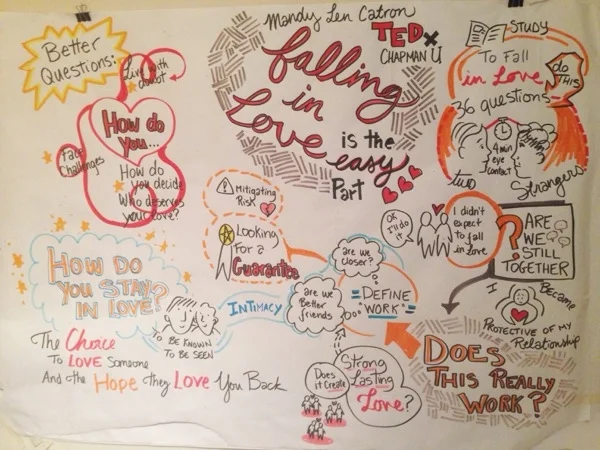 Better
Questions:
Live with
doubt
How do
you...
Face
Challenges
How do
you decide
Who deserves
your love?
Mandy Len Catron
TEDx
CHAPMAN U
falling
in
Love
is the
easy
Part
STUDY
To Fall
in Love
do
THIS
36 questions
4 min
eye
contact
two
Strangers
Mitigating
Risk
Looking
For a
Guarantee
OK
I'll do
it
I didn't
expect
to fall
in love
?
ARE
WE
STILL
TOGETHER
I Became
PROTECTIVE OF MY
Relationship
HOW DO
YOU STAY
IN LOVE?
TO BE KNOWN
TO BE SEEN
INTIMACY
are we
closer?
are we
Better
friends
DEFINE
"WORK"
DOES
THIS REALLY
WORK?
Does
it Create
Strong
Lasting
Love?
The Choice
To LOVE Someone
And the Hope they Love You Back